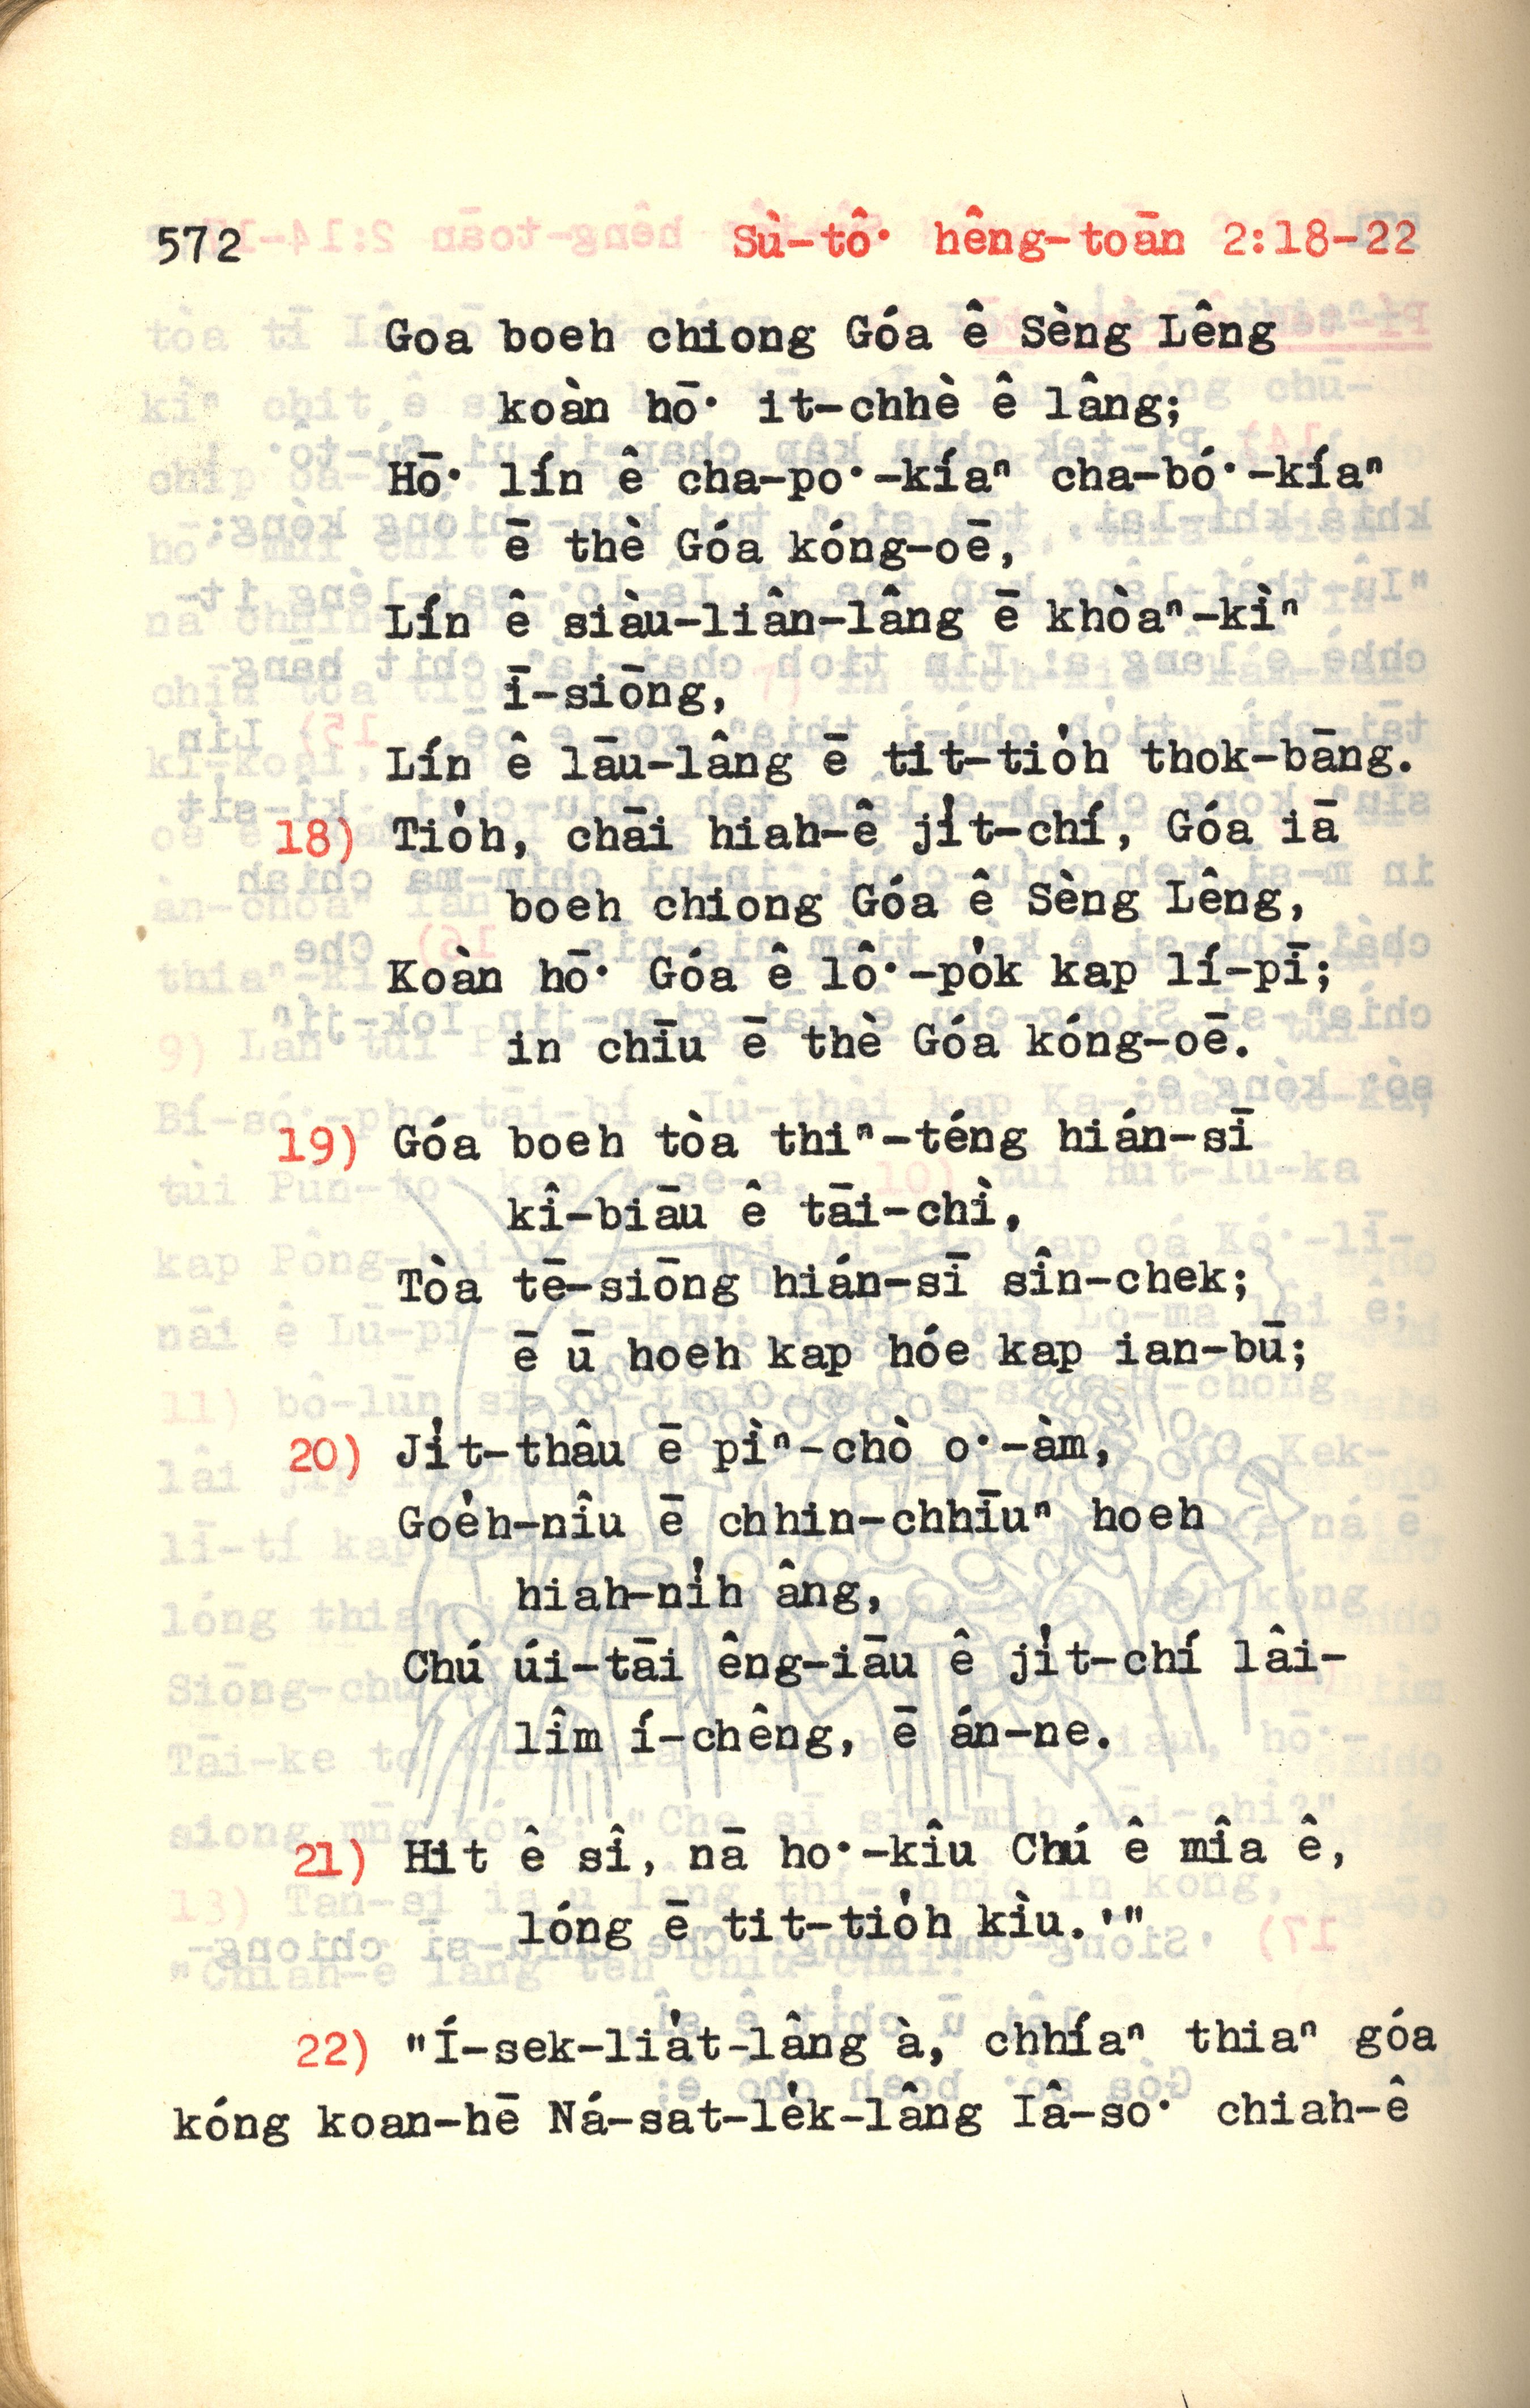 572 Sù-tô͘ hêng-toān 2:18-22
Goa boeh chiong Góa ê Sèng Lêng
koàn hō͘ it-chhè ê lâng;
Hō͘ lín ê cha-po͘-kíaⁿ cha-bó͘-kíaⁿ
ē thè Góa kóng-oē,
Lín ê siàu-liân-lâng ē khòaⁿ-kìⁿ
ī-siōng,
Lín ê lāu-lâng ē tit-tio̍h thok-bāng.
18) Tio̍h, chāi hiah-ê ji̍t-chí, Góa iā
boeh chiong Góa ê Sèng Lêng,
Koàn hō͘ Góa ê lô͘-po̍k kap lí-pī;
in chīu ē thè Góa kóng-oē.
19) Góa boeh tòa thiⁿ-téng hián-sī
kî-biāu ê tāi-chì,
Tòa tē-siōng hián-sī sîn-chek;
ē ū hoeh kap hóe kap ian-bū;
20) Ji̍t-thâu ē pìⁿ-chò o͘-àm,
Goe̍h-nîu ē chhin-chhīuⁿ hoeh
hiah-ni̍h âng,
Chú úi-tāi êng-iāu ê ji̍t-chí lâi-
lîm í-chêng, ē án-ne.
21) Hit ê sî, nā ho͘-kîu Chú ê mîa ê,
lóng ē tit-tio̍h kìu.'"
22) "Í-sek-lia̍t-lâng à, chhíaⁿ thiaⁿ góa
kóng koan-hē Ná-sat-le̍k-lâng Iâ-so͘ chiah-ê